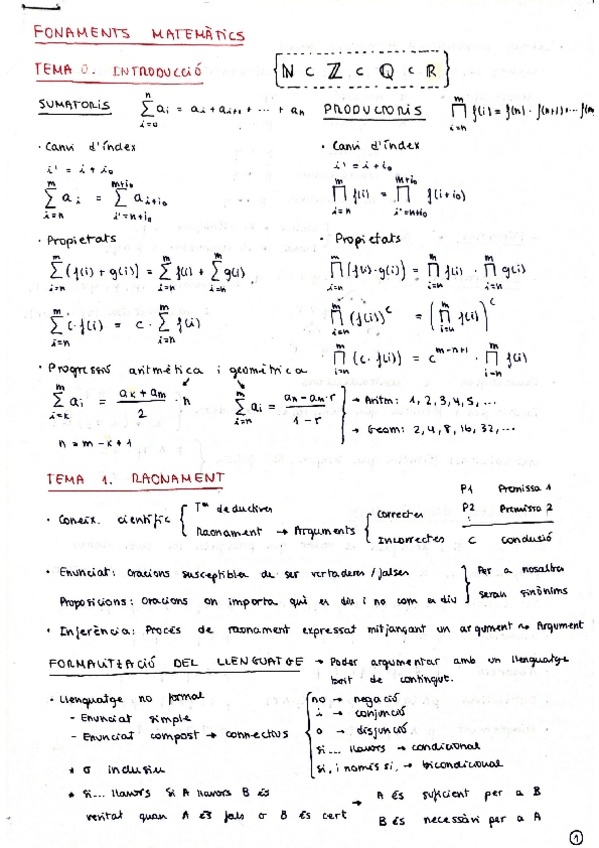 FONAMENTS MATEMÀTICS
TEMA 0. INTRODUCCIÓ
{ℕ ⊂ ℤ ⊂ ℚ ⊂ ℝ}
SUMATORIS
∑_{i=0}^{n} ai = ai + ai+1 + ... + an
· Canvi d'índex
i' = i + i₀
∑_{i=n}^{m} ai = ∑_{i'=n+i₀}^{m+i₀} ai+i₀
· Propietats
∑_{i=n}^{m} (f(i) + g(i)) = ∑_{i=n}^{m} f(i) + ∑_{i=n}^{m} g(i)
∑_{i=n}^{m} c·f(i) = c · ∑_{i=n}^{m} f(i)
PRODUCTORIS
∏_{i=n}^{m} f(i) = f(n) · f(n+1)···f(m
· Canvi d'índex
i' = i + i₀
∏_{i=n}^{m} f(i) = ∏_{i'=n+i₀}^{m+i₀} f(i+i₀)
· Propietats
∏_{i=n}^{m} (f(i)·g(i)) = ∏_{i=n}^{m} f(i) · ∏_{i=n}^{m} g(i)
∏_{i=n}^{m} (f(i))^c = (∏_{i=n}^{m} f(i))^c
∏_{i=n}^{m} (c·f(i)) = c^{m-n+1} · ∏_{i=n}^{m} f(i)
· Progressió aritmètica i geomètrica
∑_{i=k}^{m} ai = (ak + am)/2 · n
n = m - k + 1
∑_{i=n}^{m} ai = (an - am·r)/(1 - r)
→ Aritm: 1, 2, 3, 4, 5, ...
→ Geom: 2, 4, 8, 16, 32, ...
TEMA 1. RAONAMENT
· Coneix. científic { Tm deductiva
Raonament → Arguments { Correctes
Incorrectes
P1 Premissa 1
P2 Premissa 2
C conclusió
· Enunciat: Oracions susceptibles de ser vertaderes / falses
Proposicions: Oracions on importa què es diu i no com es diu
} Per a nosaltres
seran sinònims
· Inferència: Procés de raonament expressat mitjançant un argument → Argument
FORMALITZACIÓ DEL LLENGUATGE → Poder argumentar amb un llenguatge
buit de contingut.
· Llenguatge no formal
- Enunciat simple
- Enunciat compost → connectius
no → negació
i → conjunció
o → disjunció
si... llavors → condicional
si, i només si, → bicondicional
* o inclusiu
* Si... llavors Si A llavors B és
veritat quan A és fals o B és cert
→ A és suficient per a B
B és necessàri per a A
1